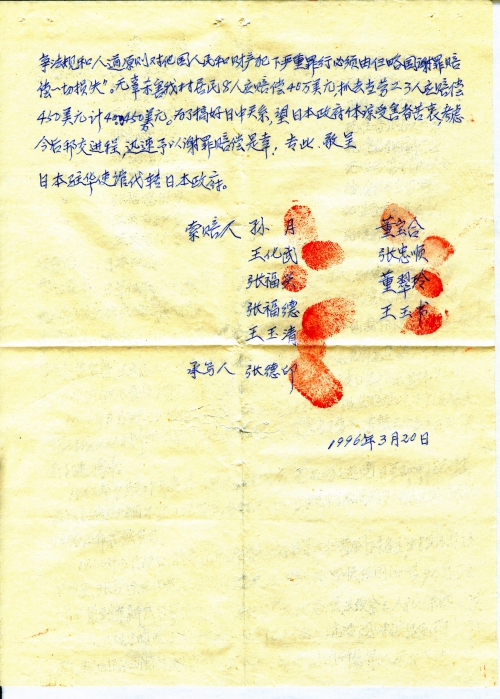 争法规和人道原则对他国人民和财产犯下严重罪行必须由侵略国谢罪赔
偿一切损失”。无辜杀害我村居民8人应赔偿40万美元抓去当劳工3人应赔偿
450美元计 美元,为了搞好日中关系,望日本政府体谅受害者苦衷,考虑
今后邦交进程,迅速予以谢罪赔偿是幸,专此,敬呈
日本驻华使馆代转日本政府。
索赔人 孙月 董宝合
王化武 张忠顺
张福 董翠玲
张福德 王玉
王玉清
承写人 张德印
1996年3月20日